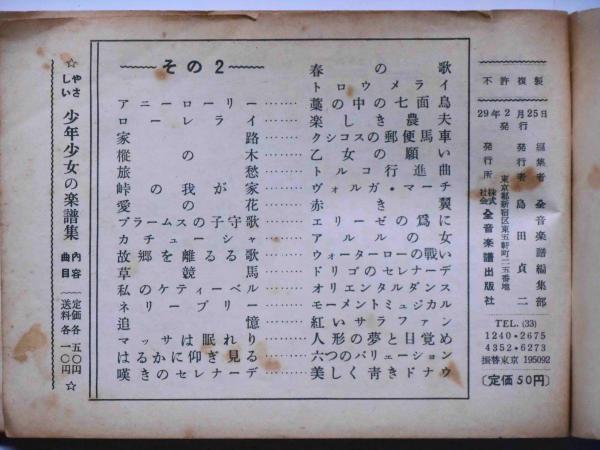 不許複製
29年2月25日
発行
編集者 全音楽譜編集部
発行者 島田貞二
東京都新宿区東五軒町二五番地
発行所 株式会社 全音楽譜出版社
TEL. (33)
1240・2675
4352・6273
振替東京 195092
〔定価50円〕
その2
春の歌
トロウメライ
アニーローリー……藁の中の七面鳥
ローレライ……楽しき農夫
家路……クシコスの郵便馬車
樅の木……乙女の願い
旅愁……トルコ行進曲
峠の我が家……ヴォルガ・マーチ
愛の花……赤き翼
ブラームスの子守歌……エリーゼの為に
カチューシャ……アルルの女
故郷を離るる歌……ウォーターローの戦い
草競馬……ドリゴのセレナーデ
私のケティーベル……オリエンタルダンス
ネリーブリー……モーメントミュジカル
追憶……紅いサラファン
マッサは眠れり……人形の夢と目覚め
はるかに仰ぎ見る……六つのバリエーション
嘆きのセレナーデ……美しく青きドナウ
☆やさしい 少年少女の楽譜集 内容曲目 定価各五〇円 送料各一〇円☆